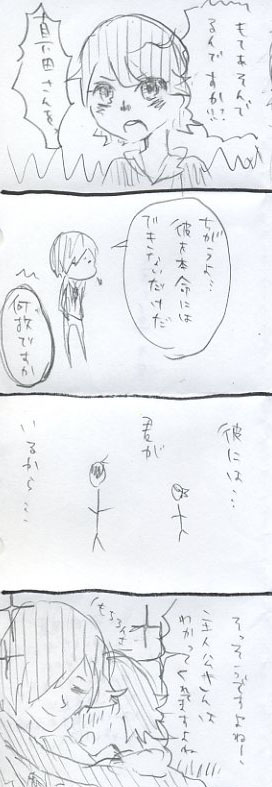 もてあそんで
るんですか!?
真下田さんを
ちがうよ…
彼を本命には
できないだけだ
何故ですか
彼には…
君が
いるから…
そっそうですよねー、
主人公さんは
わかってくれてますよね
もちろんさ